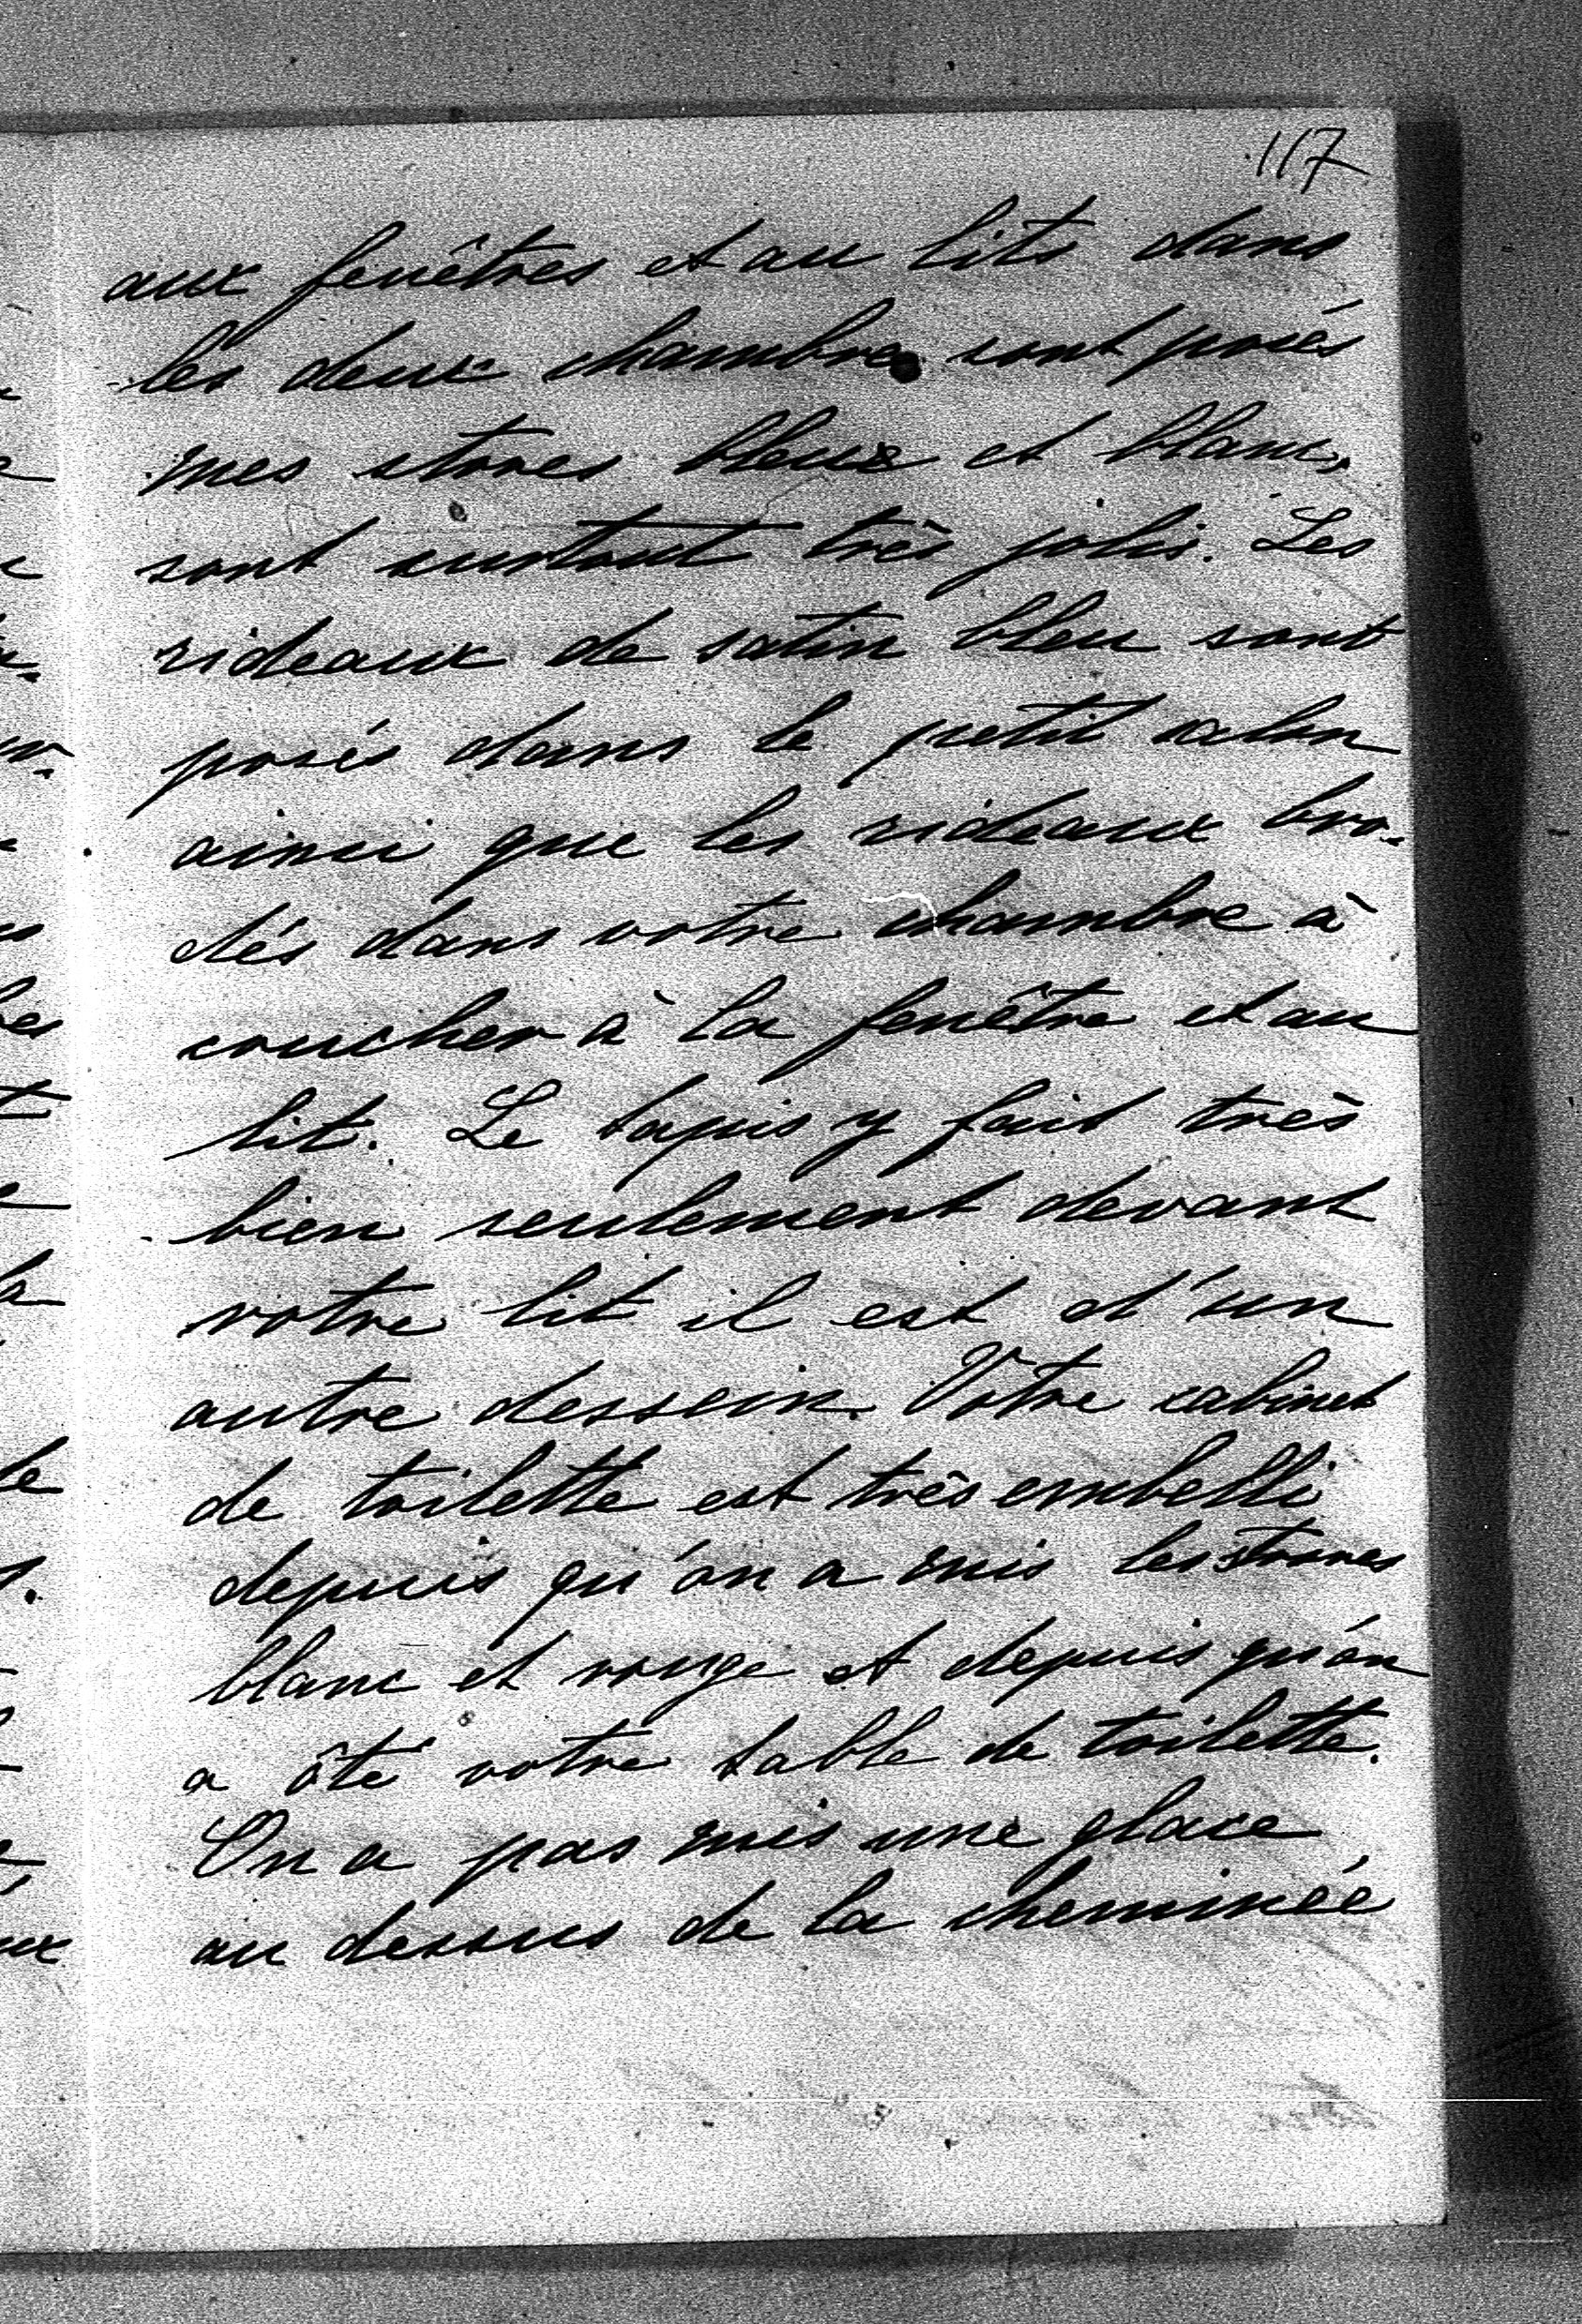 117
aux fenêtres et au lits dans
les deux chambres sont posés
mes stores bleus et blancs
sont surtout très jolis. Les
rideaux de satin bleu sont
posés dans le petit salon
ainsi que les rideaux bro-
dés dans votre chambre à
coucher à la fenêtre et au
lit. Le tapis y fait très
bien seulement devant
votre lit il est d'un
autre dessein. Votre cabinet
de toilette est très embelli
depuis qu'on a mis les stores
blanc et rouge et depuis qu'on
a ôté votre table de toilette.
On a pas mis une glace
au dessus de la cheminée